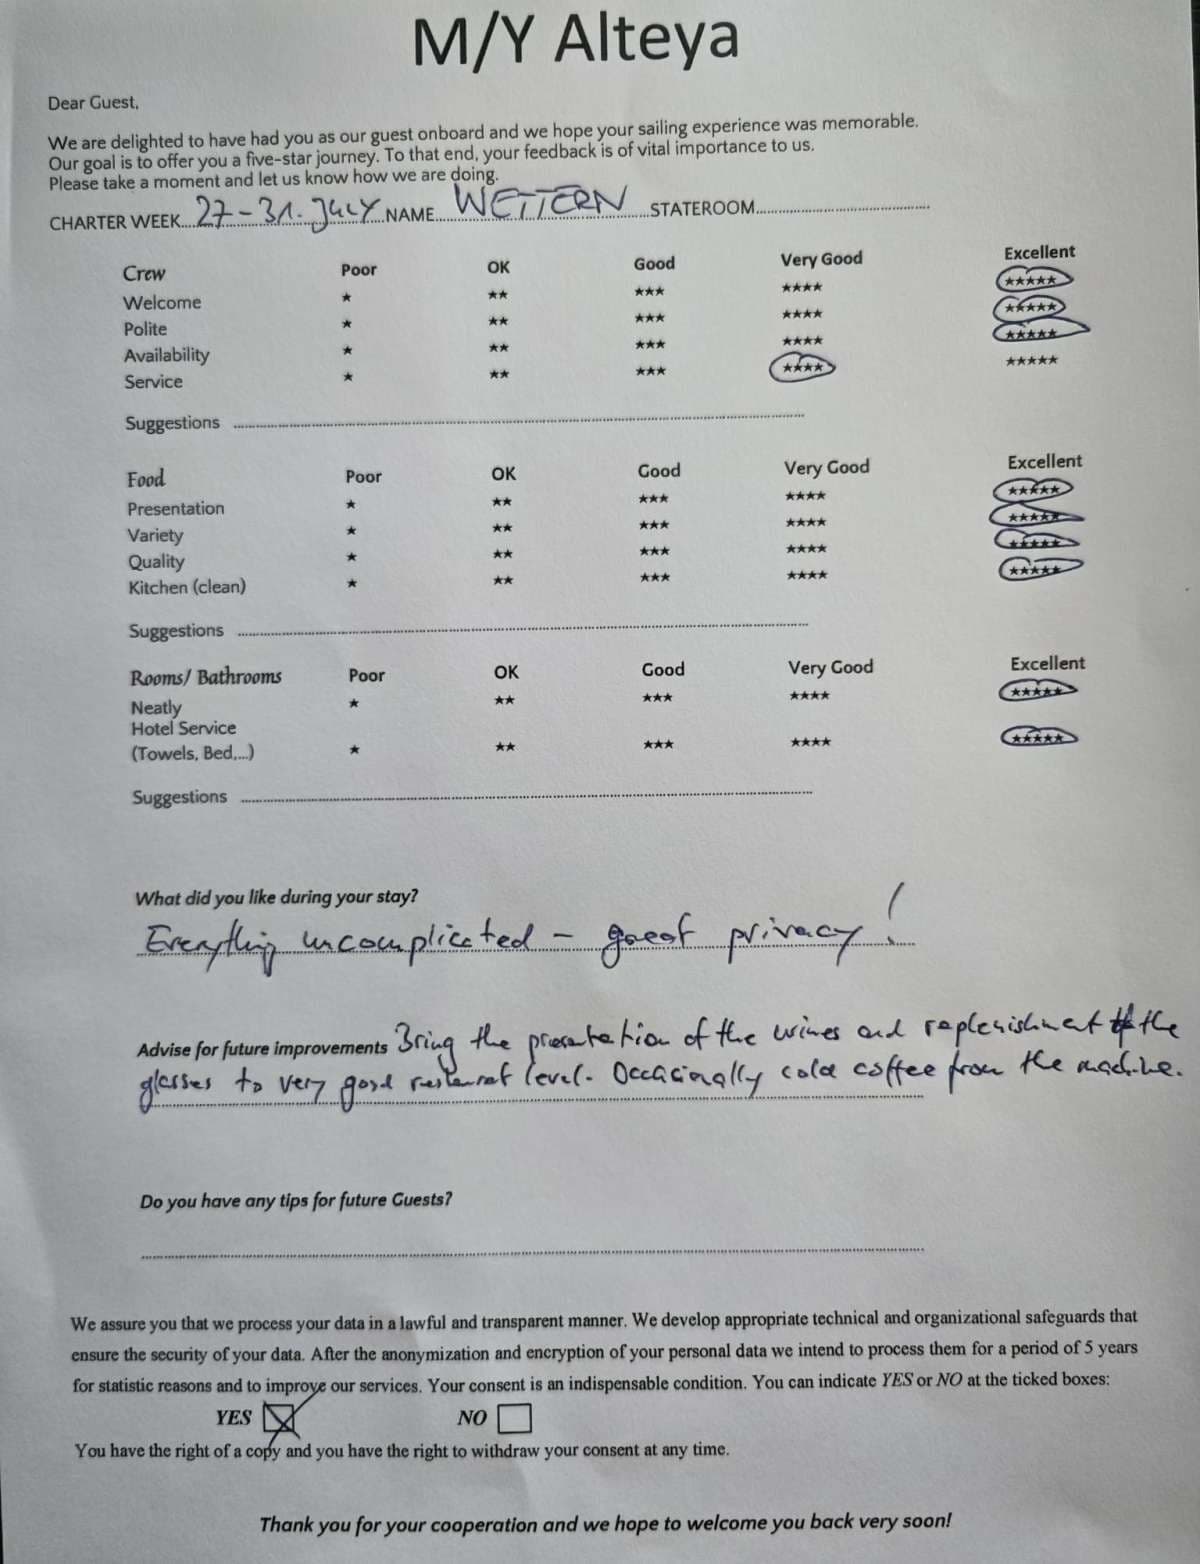 M/Y Alteya
Dear Guest,
We are delighted to have had you as our guest onboard and we hope your sailing experience was memorable.
Our goal is to offer you a five-star journey. To that end, your feedback is of vital importance to us.
Please take a moment and let us know how we are doing.
CHARTER WEEK....27-31. JULY...NAME....WETTERN....STATEROOM....
Crew Poor OK Good Very Good Excellent
Welcome ★ ★★ ★★★ ★★★★ ★★★★★
Polite ★ ★★ ★★★ ★★★★ ★★★★★
Availability ★ ★★ ★★★ ★★★★ ★★★★★
Service ★ ★★ ★★★ ★★★★ ★★★★★
Suggestions
Food Poor OK Good Very Good Excellent
Presentation ★ ★★ ★★★ ★★★★ ★★★★★
Variety ★ ★★ ★★★ ★★★★ ★★★★★
Quality ★ ★★ ★★★ ★★★★ ★★★★★
Kitchen (clean) ★ ★★ ★★★ ★★★★ ★★★★★
Suggestions
Rooms/ Bathrooms Poor OK Good Very Good Excellent
Neatly ★ ★★ ★★★ ★★★★ ★★★★★
Hotel Service
(Towels, Bed,...) ★ ★★ ★★★ ★★★★ ★★★★★
Suggestions
What did you like during your stay?
Everything uncomplicated - great privacy!
Advise for future improvements Bring the presentation of the wines and replenishment of the
glasses to very good restaurant level. Occasionally cold coffee from the machine.
Do you have any tips for future Guests?
We assure you that we process your data in a lawful and transparent manner. We develop appropriate technical and organizational safeguards that
ensure the security of your data. After the anonymization and encryption of your personal data we intend to process them for a period of 5 years
for statistic reasons and to improve our services. Your consent is an indispensable condition. You can indicate YES or NO at the ticked boxes:
YES NO
You have the right of a copy and you have the right to withdraw your consent at any time.
Thank you for your cooperation and we hope to welcome you back very soon!